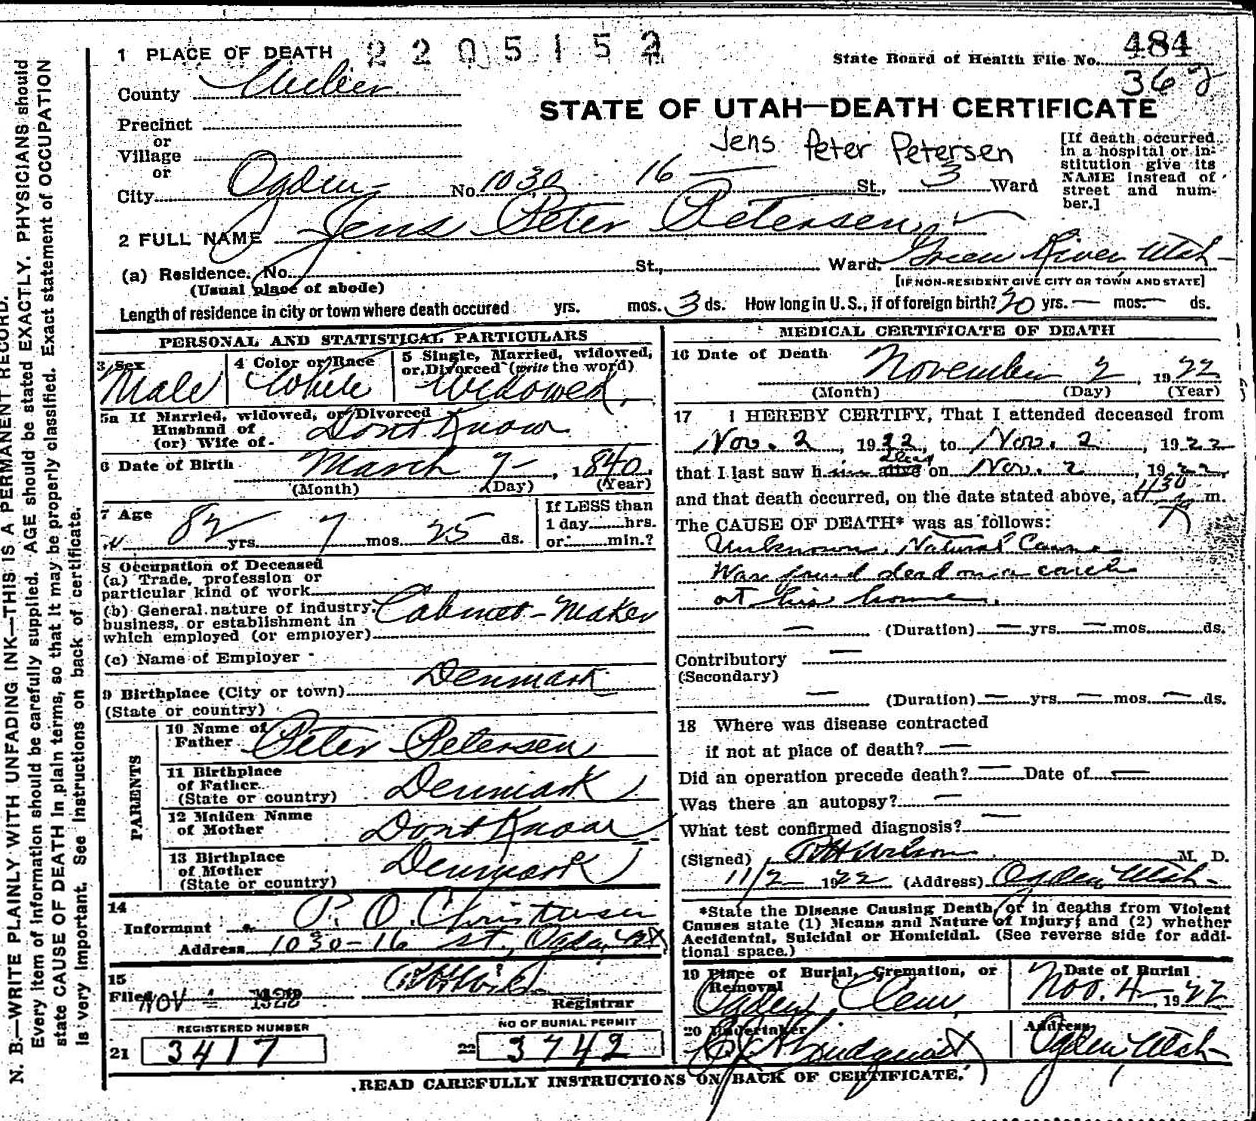 1 PLACE OF DEATH 2205152
State Board of Health File No. 484
362
County Weber
STATE OF UTAH—DEATH CERTIFICATE
Precinct
or
Village
or
Jens Peter Petersen
[If death occurred in a hospital or institution give its NAME instead of street and number.]
City Ogden No. 1030 16 — St., 3 Ward
2 FULL NAME Jens Peter Petersen
(a) Residence. No. St., Ward. Green River Utah
(Usual place of abode) [IF NON-RESIDENT GIVE CITY OR TOWN AND STATE]
Length of residence in city or town where death occured yrs. mos. 3 ds. How long in U.S., if of foreign birth? yrs. — mos. — ds.
PERSONAL AND STATISTICAL PARTICULARS
3 Sex Male
4 Color or Race White
5 Single, Married, widowed, or Divorced (write the word) Widowed
5a If Married, widowed, or Divorced
Husband of
(or) Wife of Dont Know
6 Date of Birth March 7, 1840
(Month) (Day) (Year)
7 Age 82 yrs. 7 mos. 25 ds.
If LESS than
1 day hrs.
or min.?
8 Occupation of Deceased
(a) Trade, profession or
particular kind of work
(b) General nature of industry,
business, or establishment in
which employed (or employer) Cabinet-Maker
(c) Name of Employer
9 Birthplace (City or town) Denmark
(State or country)
PARENTS
10 Name of
Father Peter Petersen
11 Birthplace
of Father
(State or country) Denmark
12 Maiden Name
of Mother Dont Know
13 Birthplace
of Mother
(State or country) Denmark
14
Informant P. O. Christensen
Address 1030-16 St, Ogden, Ut
15
Filed NOV
Registrar
REGISTERED NUMBER
21 3417
NO OF BURIAL PERMIT
22 3742
MEDICAL CERTIFICATE OF DEATH
16 Date of Death November 2, 1922
(Month) (Day) (Year)
17 I HEREBY CERTIFY, That I attended deceased from
Nov. 2 1922, to Nov. 2 1922
that I last saw him alive dead on Nov. 2, 1922
and that death occurred, on the date stated above, at 1130 m.
The CAUSE OF DEATH* was as follows:
Unknown, Natural Cause
Was found dead on a couch
at his home.
— (Duration) — yrs. — mos. ds.
Contributory —
(Secondary)
— (Duration) — yrs. — mos. — ds.
18 Where was disease contracted
if not at place of death? —
Did an operation precede death? — Date of —
Was there an autopsy? —
What test confirmed diagnosis? —
(Signed) Wilson M. D.
11/2 1922 (Address) Ogden Utah
*State the Disease Causing Death, or in deaths from Violent
Causes state (1) Means and Nature of Injury; and (2) whether
Accidental, Suicidal or Homicidal. (See reverse side for addi-
tional space.)
19 Place of Burial, Cremation, or
Removal
Ogden Cem.
Date of Burial
Nov. 4 1922
20 Undertaker
Lindquist
Address
Ogden, Utah
READ CAREFULLY INSTRUCTIONS ON BACK OF CERTIFICATE.
N. B.—WRITE PLAINLY WITH UNFADING INK—THIS IS A PERMANENT RECORD.
Every item of information should be carefully supplied. AGE should be stated EXACTLY. PHYSICIANS should
state CAUSE OF DEATH in plain terms, so that it may be properly classified. Exact statement of OCCUPATION
is very important. See instructions on back of certificate.